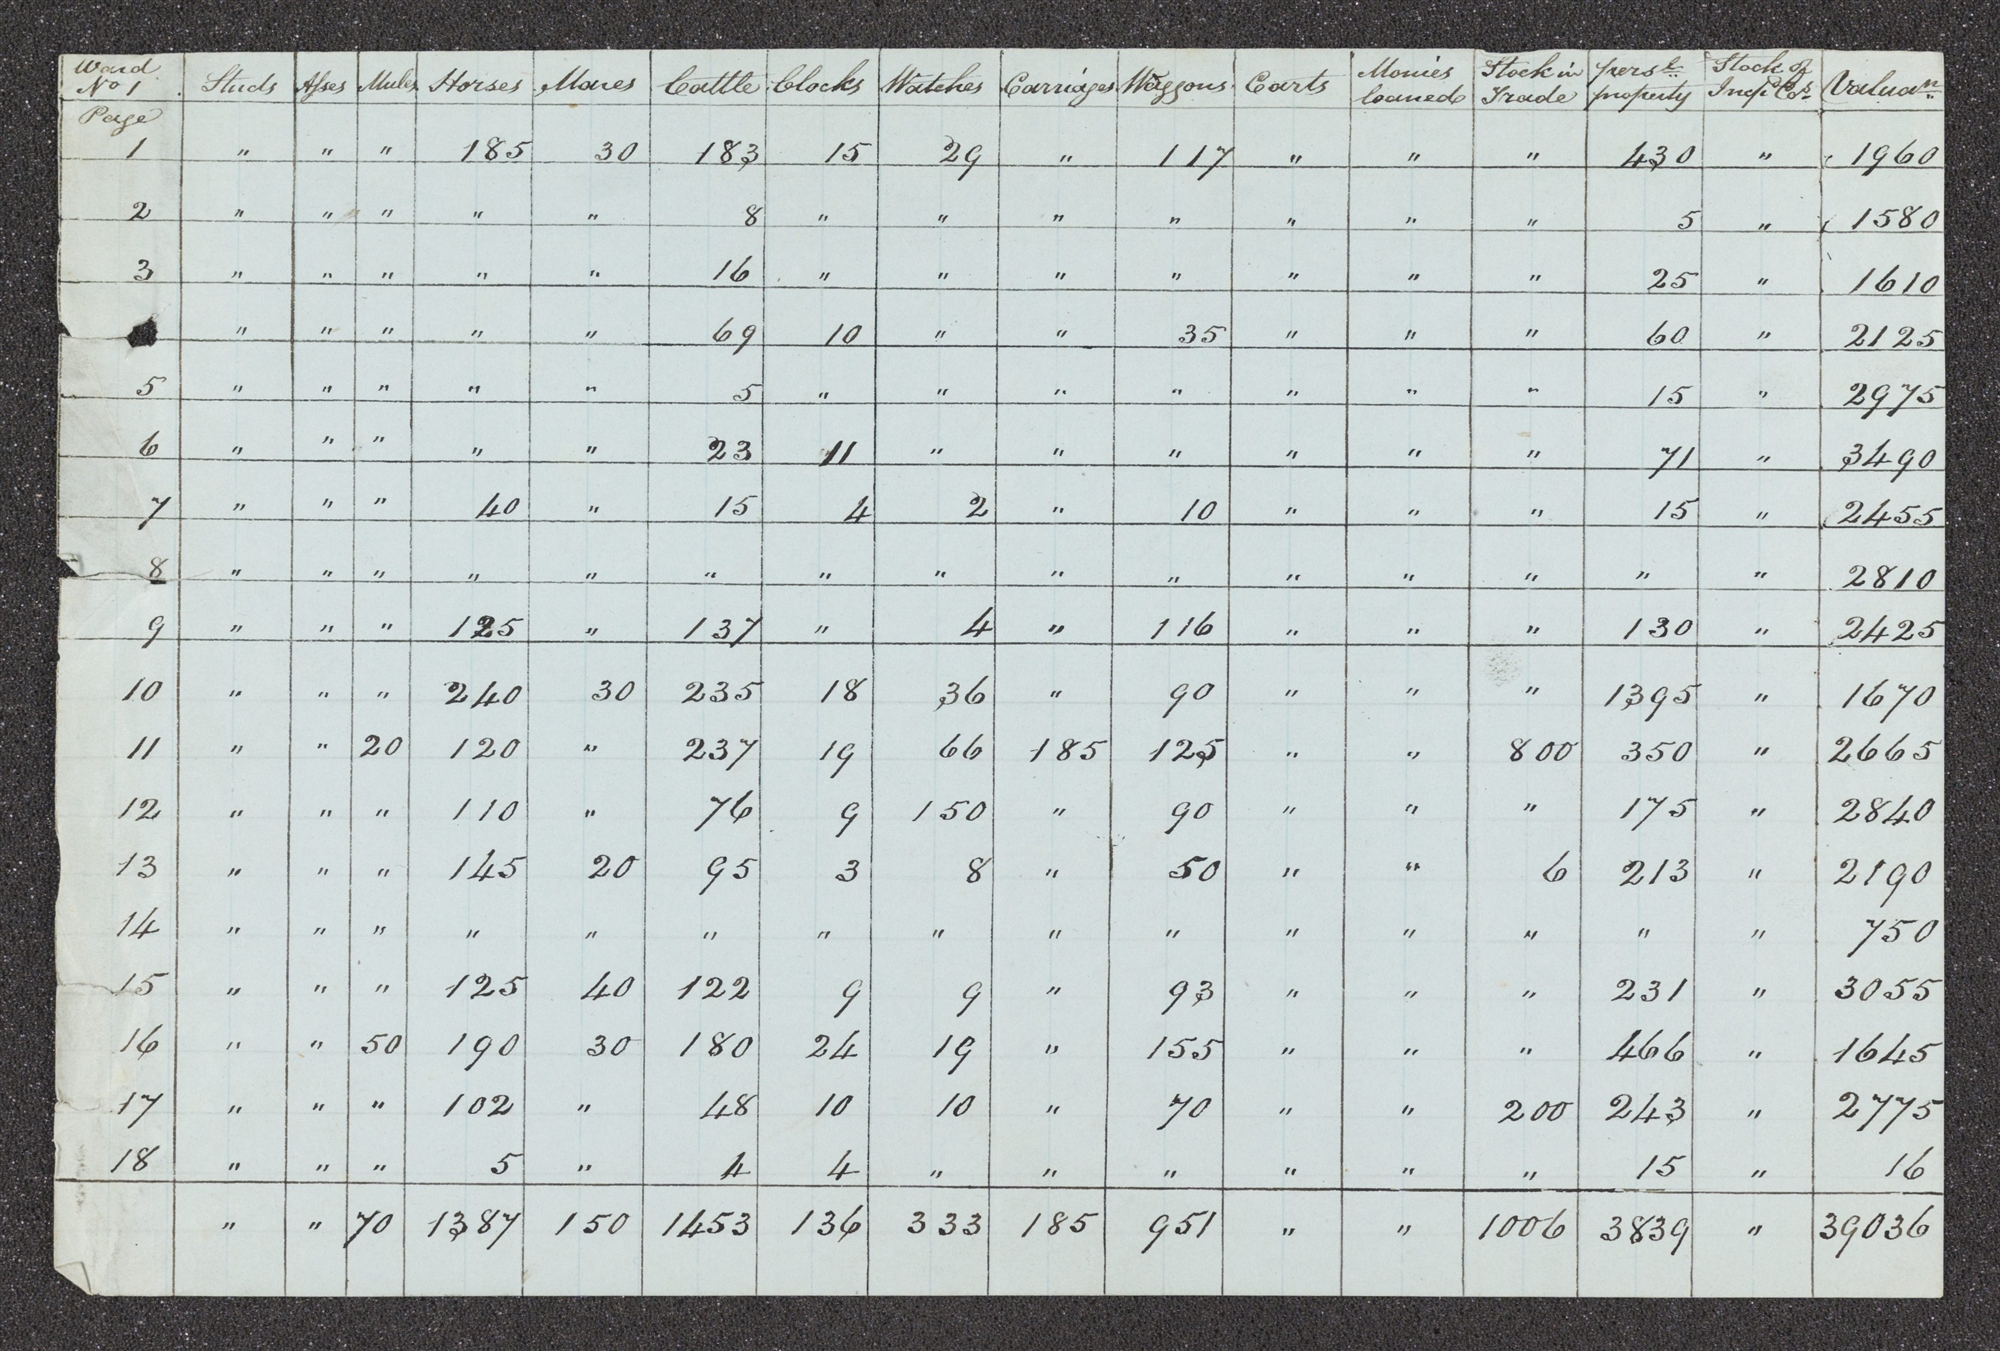 Ward No 1 Studs Asses Mules Horses Mares Cattle Clocks Watches Carriages Waggons Carts Monies loaned Stock in Trade pers.l property Stock of Incp Cos. Valuan
Page
1 " " " 185 30 183 15 29 " 117 " " " 430 " 1960
2 " " " " " 8 " " " " " " " 5 " 1580
3 " " " " " 16 " " " " " " " 25 " 1610
" " " " " 69 10 " " 35 " " " 60 " 2125
5 " " " " " 5 " " " " " " " 15 " 2975
6 " " " " " 23 11 " " " " " " 71 " 3490
7 " " " 40 " 15 4 2 " 10 " " " 15 " 2455
8 " " " " " " " " " " " " " " " 2810
9 " " " 125 " 137 " 4 " 116 " " " 130 " 2425
10 " " " 240 30 235 18 36 " 90 " " " 1395 " 1670
11 " " 20 120 " 237 19 66 185 125 " " 800 350 " 2665
12 " " " 110 " 76 9 150 " 90 " " " 175 " 2840
13 " " " 145 20 95 3 8 " 50 " " 6 213 " 2190
14 " " " " " " " " " " " " " " " 750
15 " " " 125 40 122 9 9 " 93 " " " 231 " 3055
16 " " 50 190 30 180 24 19 " 155 " " " 466 " 1645
17 " " " 102 " 48 10 10 " 70 " " 200 243 " 2775
18 " " " 5 " 4 4 " " " " " " 15 " 16
" " 70 1387 150 1453 136 333 185 951 " " 1006 3839 " 39036